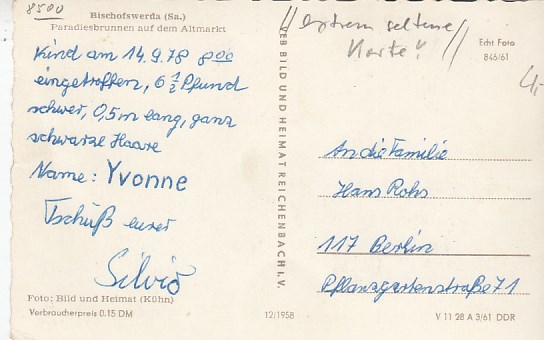 8500
Bischofswerda (Sa.)
Paradiesbrunnen auf dem Altmarkt
Kind am 14.9.78 8 00
eingetroffen, 6 1/2 Pfund
schwer, 0,5m lang, ganz
schwarze Haare
Name: Yvonne
Tschüß eurer
Silvio
Foto: Bild und Heimat (Kühn)
Verbraucherpreis 0.15 DM
VEB BILD UND HEIMAT REICHENBACH I.V.
12/1958
// extrem seltene
Karte! //
Echt Foto
846/61
4,-
An die Familie
Hans Rohs
117 Berlin
Pflanzgartenstraße 71
V 11 28 A 3/61 DDR